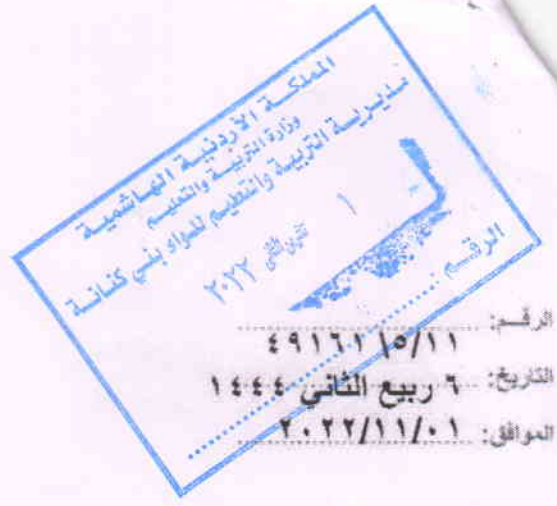 المملكة الأردنية الهاشمية
وزارة التربية والتعليم
مديرية التربية والتعليم للواء بني كنانة
١ تشرين الثاني ٢٠٢٢
الرقم :
الرقم: ٤٩١٦١ /٥/١١
التاريخ: ٦ ربيع الثاني ١٤٤٤
الموافق: ٢٠٢٢/١١/٠١